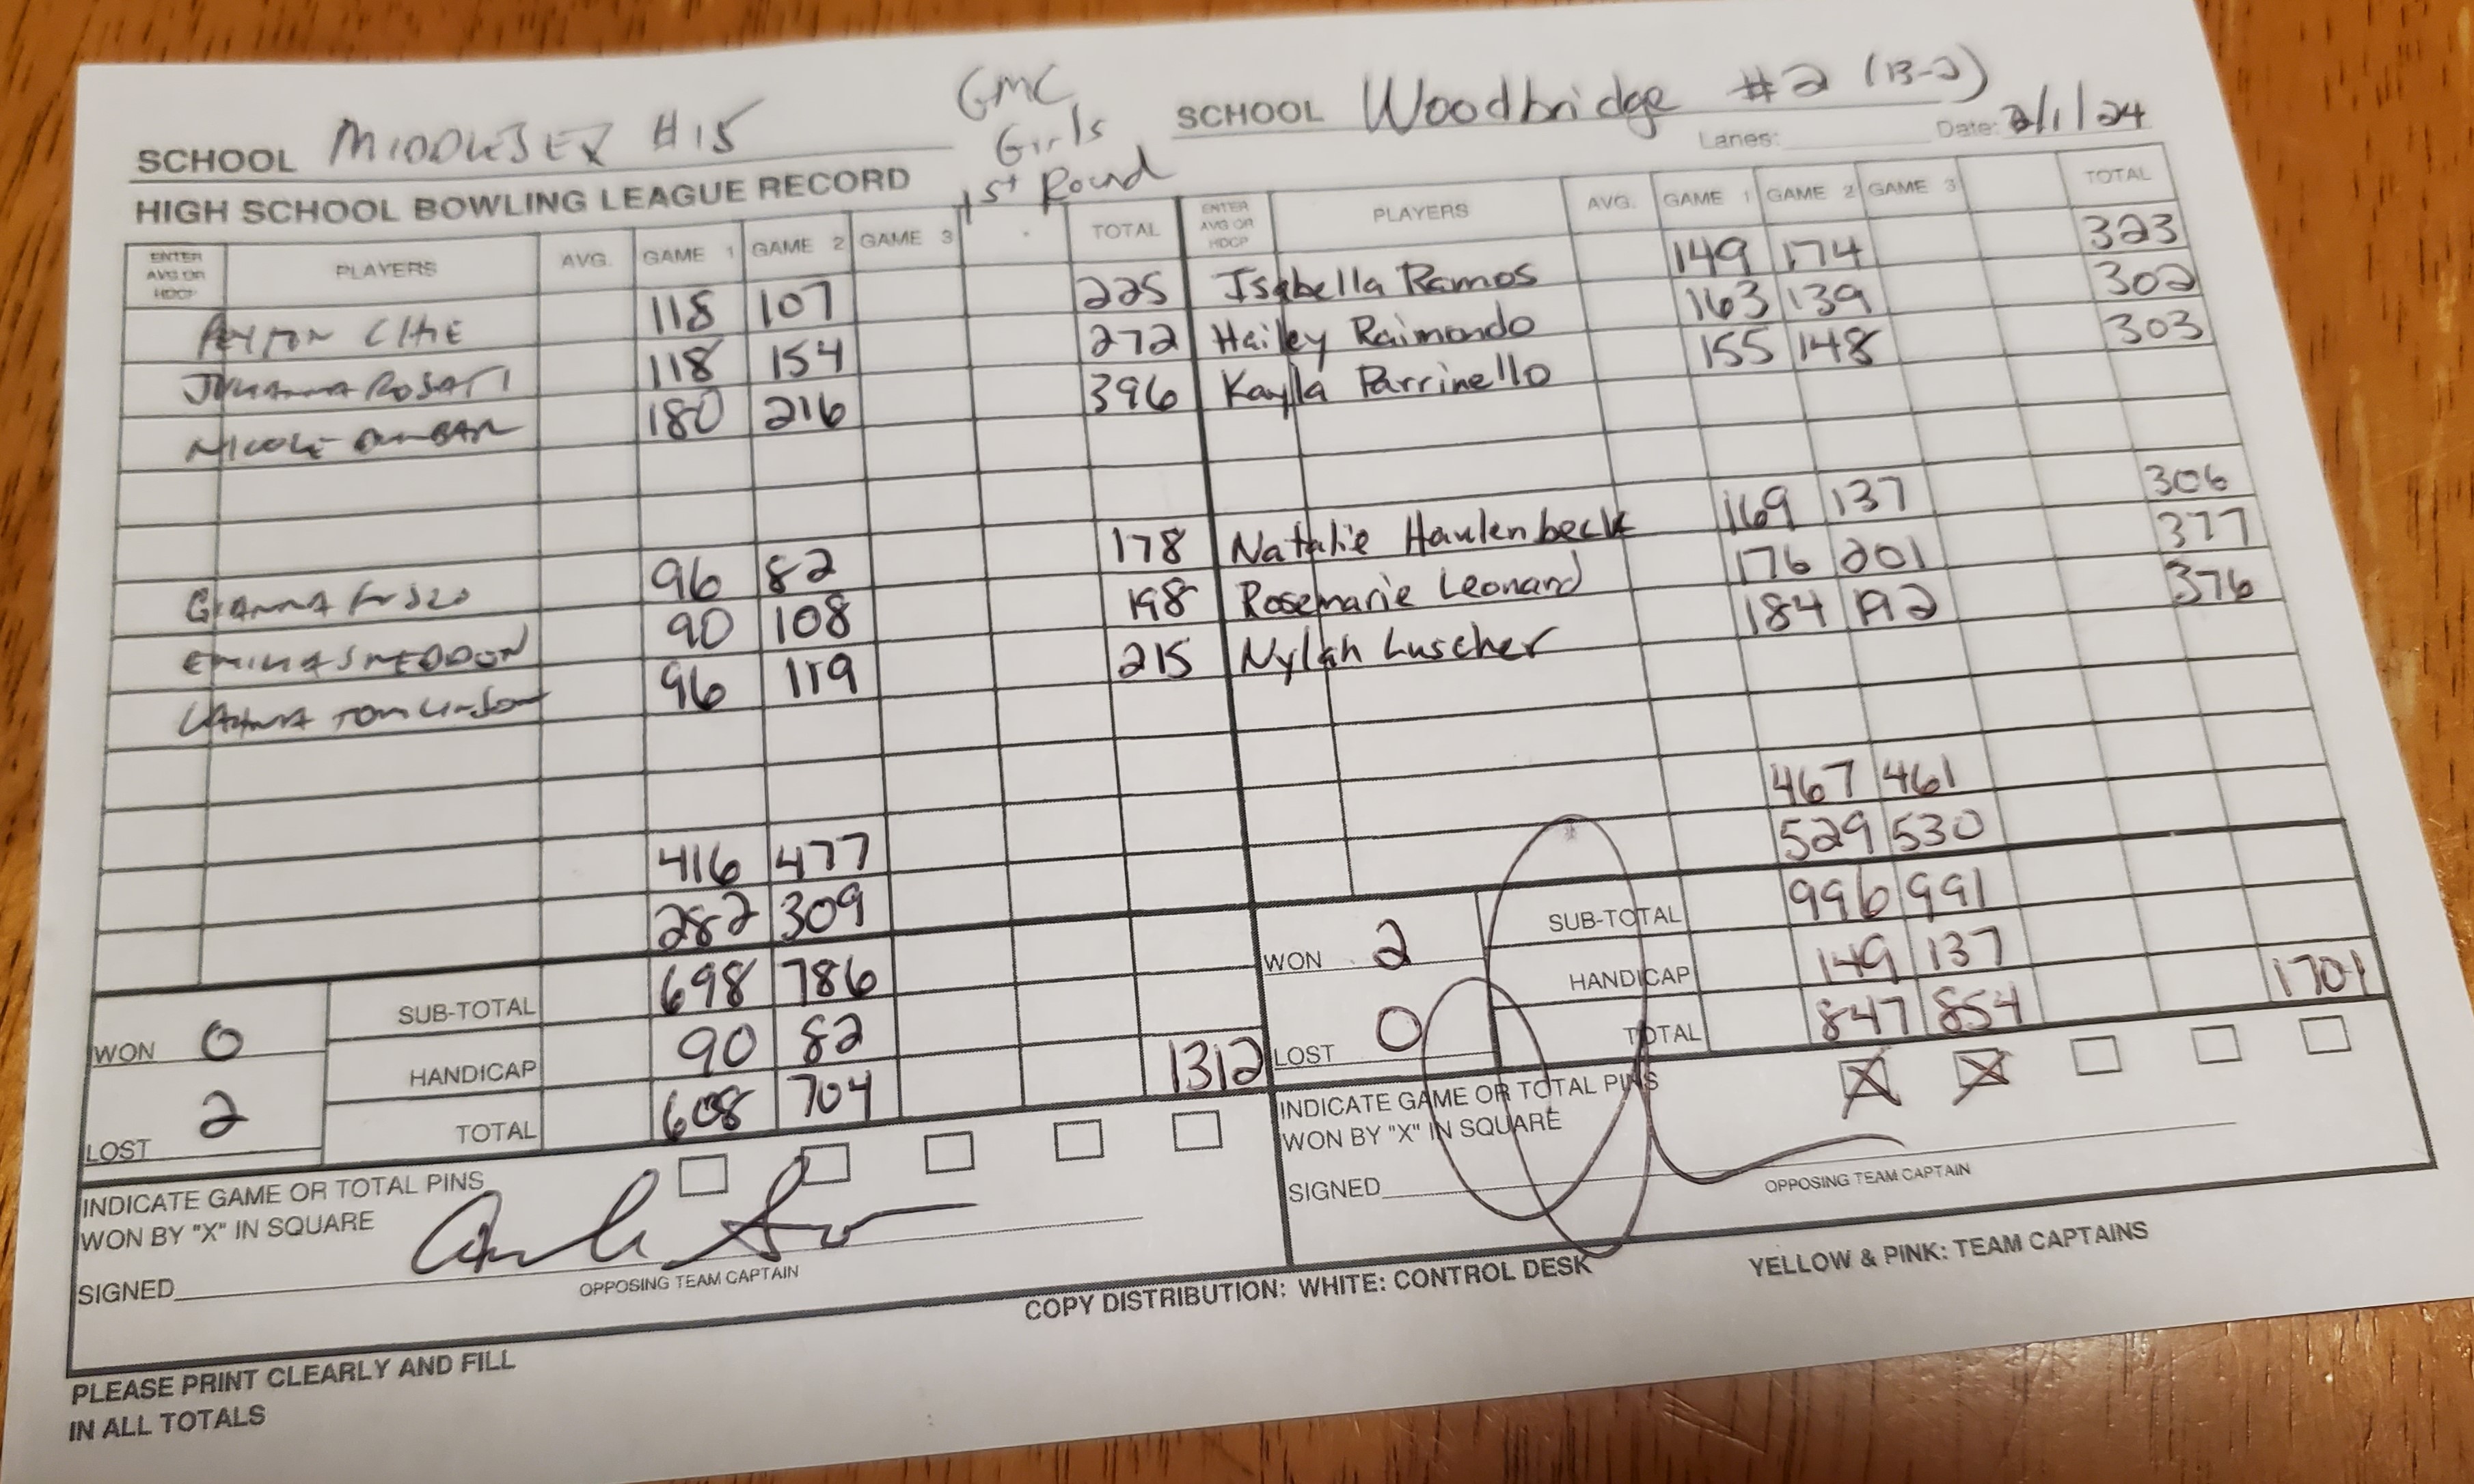 SCHOOL MIDDLESEX #15
GMC
Girls
1st Round
SCHOOL Woodbridge #2 (13-2)
Lanes: Date: 2/1/24
HIGH SCHOOL BOWLING LEAGUE RECORD
ENTER AVG OR HDCP PLAYERS AVG. GAME 1 GAME 2 GAME 3 TOTAL
118 107 225
JULIANNA ROSATI 118 154 272
NICOLE DUNBAR 180 216 396
GIANNA 96 82 178
EMILIA SNEDDON 90 108 198
TOMLINSON 96 119 215
416 477
282 309
SUB-TOTAL 698 786
HANDICAP 90 82
TOTAL 608 704 1312
WON 0
LOST 2
INDICATE GAME OR TOTAL PINS
WON BY "X" IN SQUARE
SIGNED
OPPOSING TEAM CAPTAIN
ENTER AVG OR HDCP PLAYERS AVG. GAME 1 GAME 2 GAME 3 TOTAL
Isabella Ramos 149 174 323
Hailey Raimondo 163 139 302
Kayla Parrinello 155 148 303
Natalie Haulenbeck 169 137 306
Rosemarie Leonard 176 201 377
Nylah Luscher 184 192 376
467 461
529 530
SUB-TOTAL 996 991
HANDICAP 149 137
TOTAL 847 854 1701
WON 2
LOST 0
INDICATE GAME OR TOTAL PINS
WON BY "X" IN SQUARE
SIGNED
OPPOSING TEAM CAPTAIN
COPY DISTRIBUTION: WHITE: CONTROL DESK YELLOW & PINK: TEAM CAPTAINS
PLEASE PRINT CLEARLY AND FILL
IN ALL TOTALS